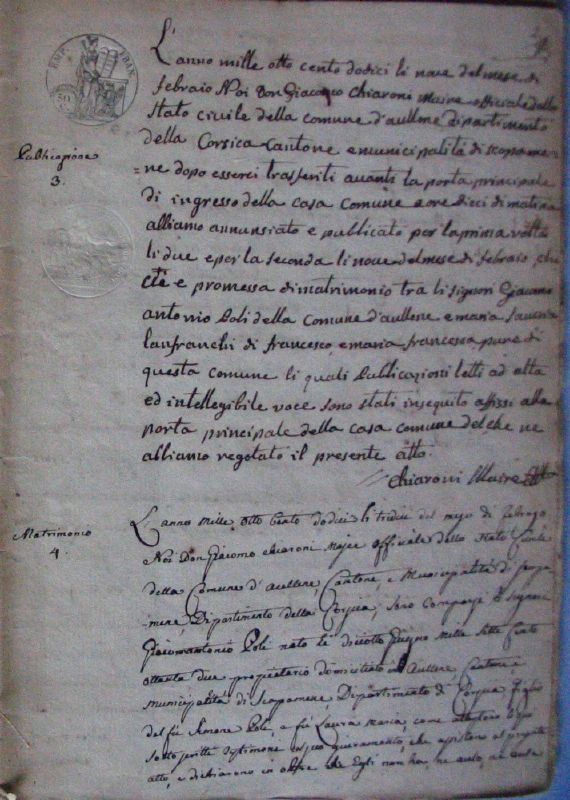 EMP. FRAN.
Publicazione
3.
L'anno mille otto cento dodici li nove del mese di
febraio Noi Don Giacomo Chiaroni Maire officiale dello
Stato civile della comune d'aullene dipartimento
della Corsica Cantone e municipalità di scopame=
=ne dopo esserci trasferiti avanti la porta principale
di ingresso della casa Comune e ore dieci di matina
abbiamo annunsiato e publicato per la prima volta
li due e per la seconda li nove del mese di febraio, che
c'è e promessa di matrimonio tra li signori Giacomo
antonio Poli della Comune d'aullene e maria Saveria
lanfranchi di francesco e maria francessa pure di
questa comune li quali Publicazioni letti ad alta
ed intellegibile voce sono stati inseguito affissi alla
porta principale della casa comune del che ne
abbiamo regotato il presente atto.
Chiaroni Maire
Matrimonio
4.
L'anno Mille Otto Cento dodici li tredici del mese di
Noi Don Giacomo Chiaroni Maire Officiale dello Stato Civile
della Comune d'Aullene, Cantone, e Municipalità di
Dipartimento della Corsica, sono Comparse il Signore
Giacomantonio Poli nato li dieciotto Giugno Mille Sette Cento
ottanta due proprietario domiciliato in Aullene, Cantone e
Municipalità di Scopamene, Dipartimento di Corsica figlio
del fù Simone Poli, e fù Laura Maria, come
sotto scritte giuramento, che
atto, e dichiarono in oltre che Egli non ha, ne